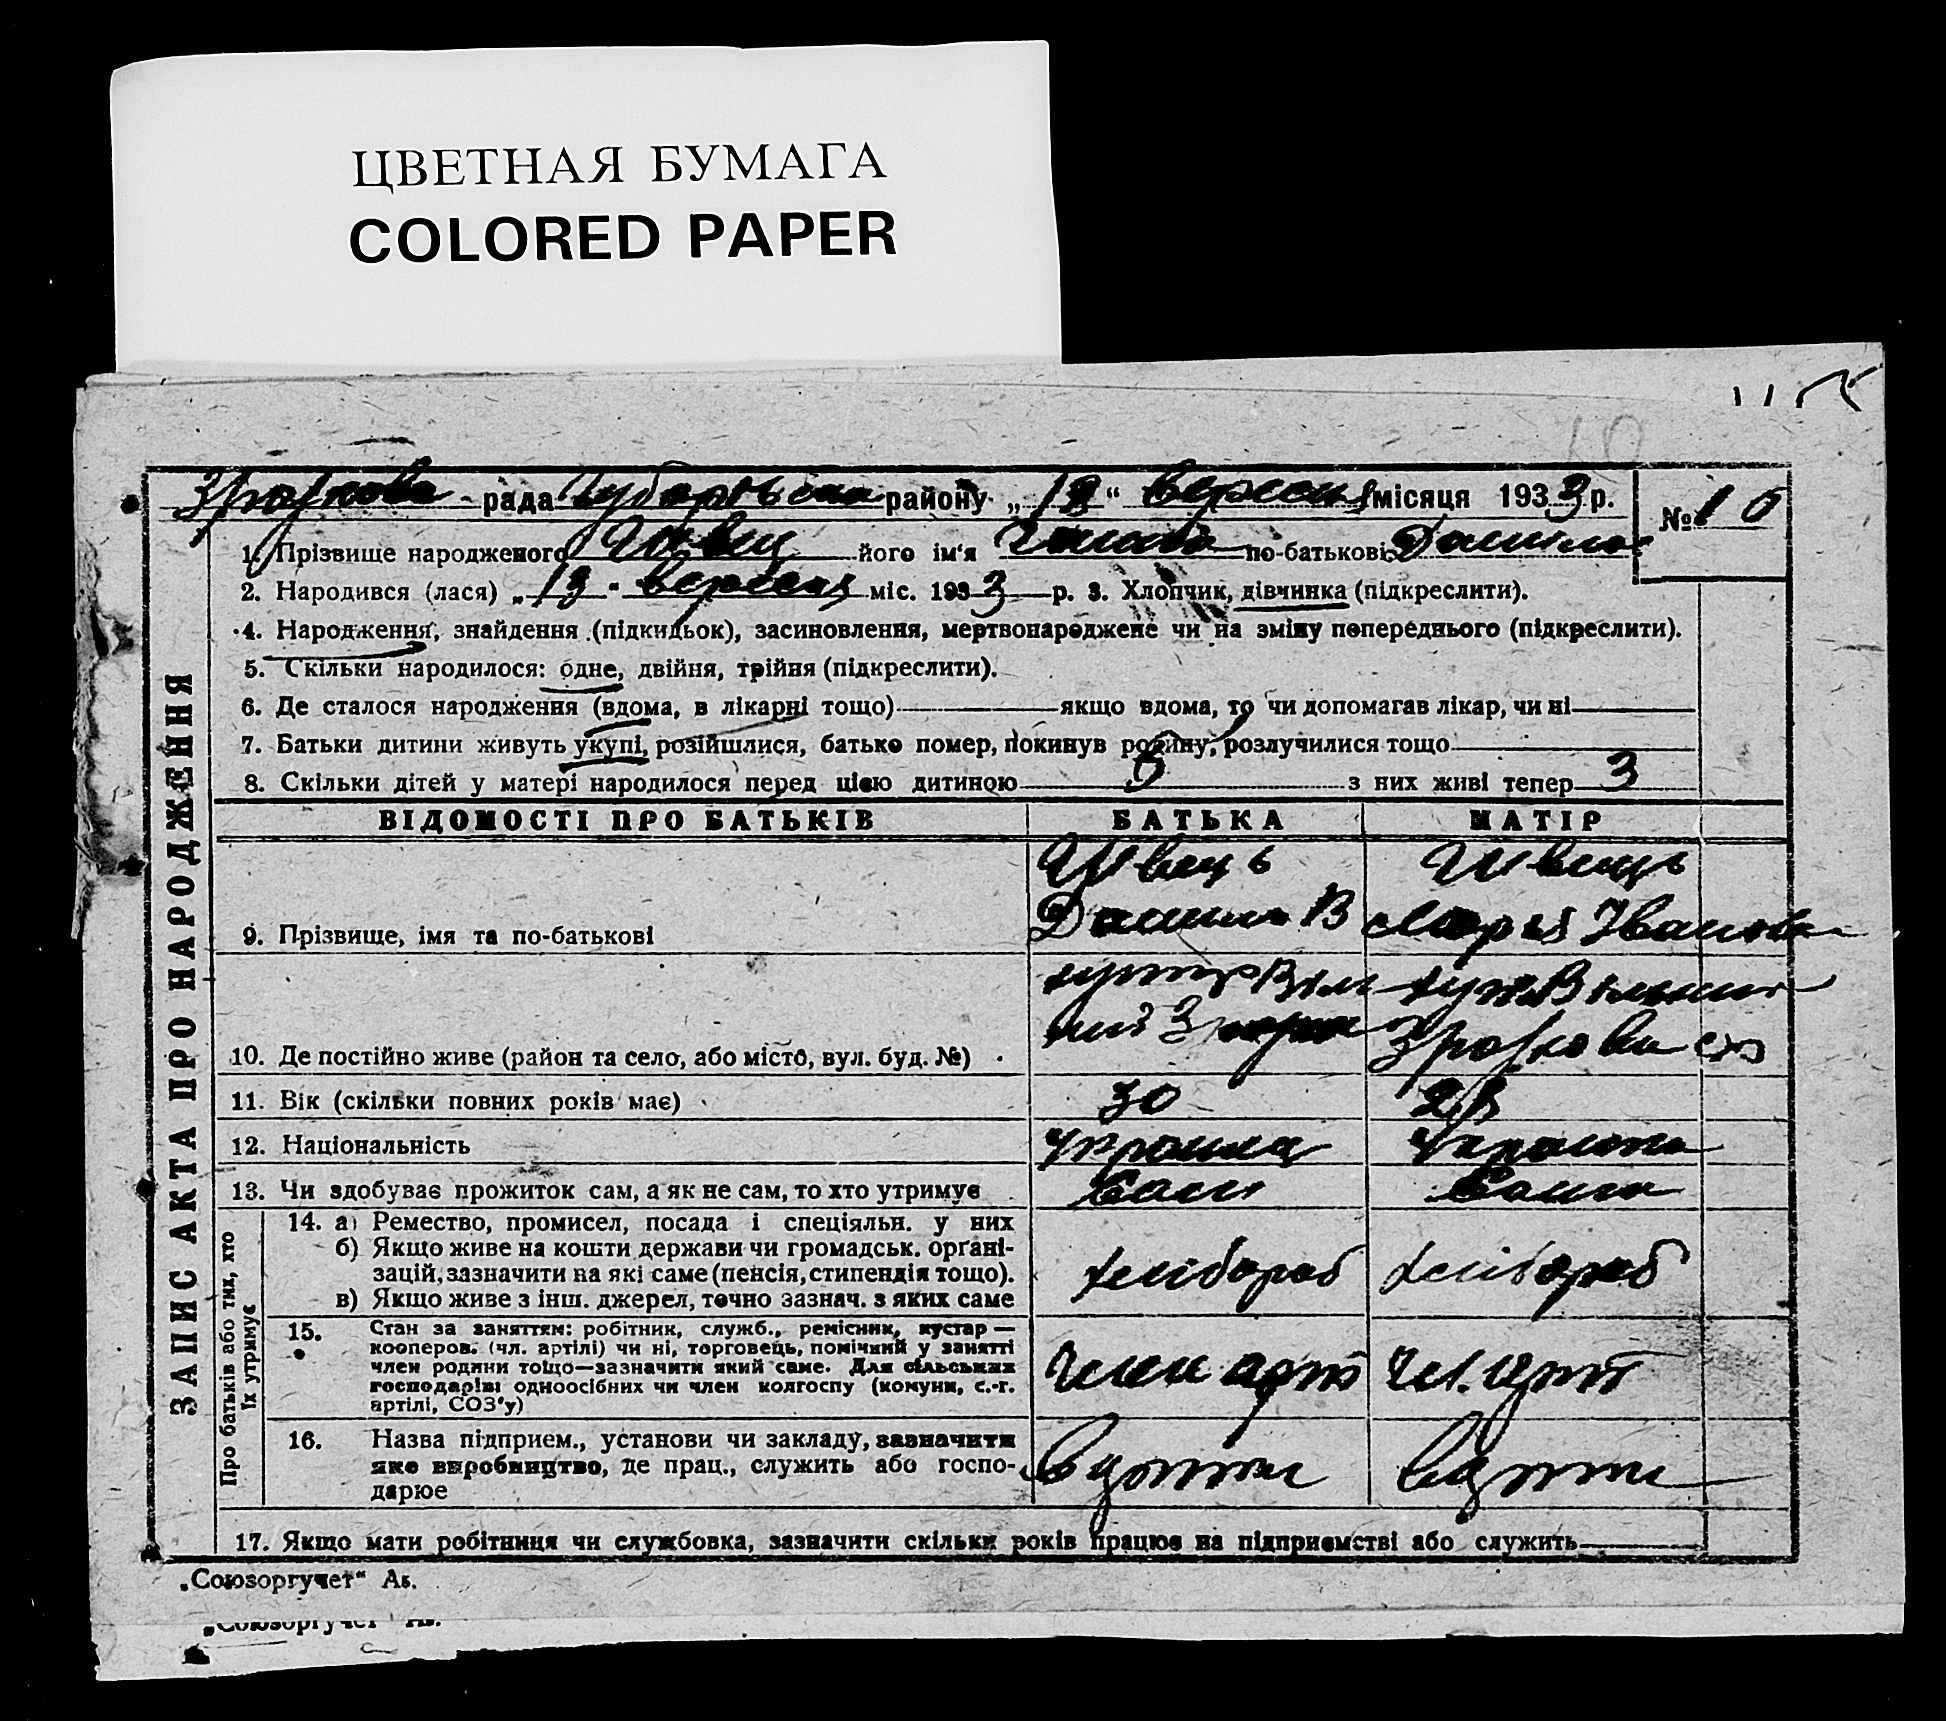 ЦВЕТНАЯ БУМАГА
COLORED PAPER
рада району „ “ вересня місяця 1933 р. № 10
1. Прізвище народженого Швец його ім'я по-батькові
2. Народився (лася) „13“ вересня міс. 1933 р. 3. Хлопчик, дівчинка (підкреслити).
4. Народження, знайдення (підкидьок), засиновлення, мертвонароджене чи на зміну попереднього (підкреслити).
5. Скільки народилося: одне, двійня, трійня (підкреслити).
6. Де сталося народження (вдома, в лікарні тощо) якщо вдома, то чи допомагав лікар, чи ні
7. Батьки дитини живуть укупі, розійшлися, батько помер, покинув родину, розлучилися тощо
8. Скільки дітей у матері народилося перед цією дитиною з них живі тепер 3
ЗАПИС АКТА ПРО НАРОДЖЕННЯ
ВІДОМОСТІ ПРО БАТЬКІВ БАТЬКА МАТІР
Швець Швець
9. Прізвище, імя та по-батькові Данило В Марія Іванова
10. Де постійно живе (район та село, або місто, вул. буд. №)
11. Вік (скільки повних років має) 30
12. Національність
13. Чи здобуває прожиток сам, а як не сам, то хто утримує Сам Сама
Про батьків або тих, хто
їх утримує
14. а) Ремество, промисел, посада і спеціяльн. у них
б) Якщо живе на кошти держави чи громадськ. орґані-
зацій, зазначити на які саме (пенсія, стипендія тощо).
в) Якщо живе з інш. джерел, точно зазнач. з яких саме
хлібороб хлібороб
15. Стан за заняттям: робітник, служб., ремісник, кустар —
кооперов. (чл. артілі) чи ні, торговець, помічний у занятті
член родини тощо—зазначити який саме. Для сільських
господарів: одноосібних чи член колгоспу (комуни, с.-г.
артілі, СОЗ'у)
член арт чл. арт
16. Назва підприєм., установи чи закладу, зазначити
яке виробництво, де прац., служить або госпо-
дарює
17. Якщо мати робітниця чи службовка, зазначити скільки років працює на підприємстві або служить
„Союзоргучет“ Ак.
„Союзоргучет“ Ак.